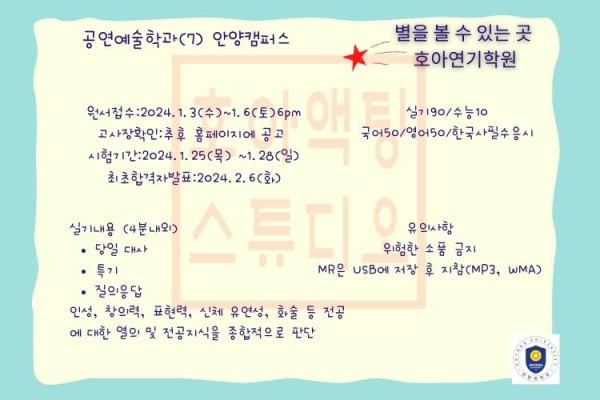 공연예술학과(7) 안양캠퍼스
별을 볼 수 있는 곳
호아연기학원
원서접수:2024.1.3(수)~1.6(토)6pm
고사장확인:추후 홈페이지에 공고
시험기간:2024.1.25(목) ~1.28(일)
최초합격자발표:2024.2.6(화)
실기90/수능10
국어50/영어50/한국사필수응시
호아액팅
스튜디오
실기내용 (4분내외)
• 당일 대사
• 특기
• 질의응답
인성, 창의력, 표현력, 신체 유연성, 화술 등 전공
에 대한 열의 및 전공지식을 종합적으로 판단
유의사항
위험한 소품 금지
MR은 USB에 저장 후 지참(MP3, WMA)